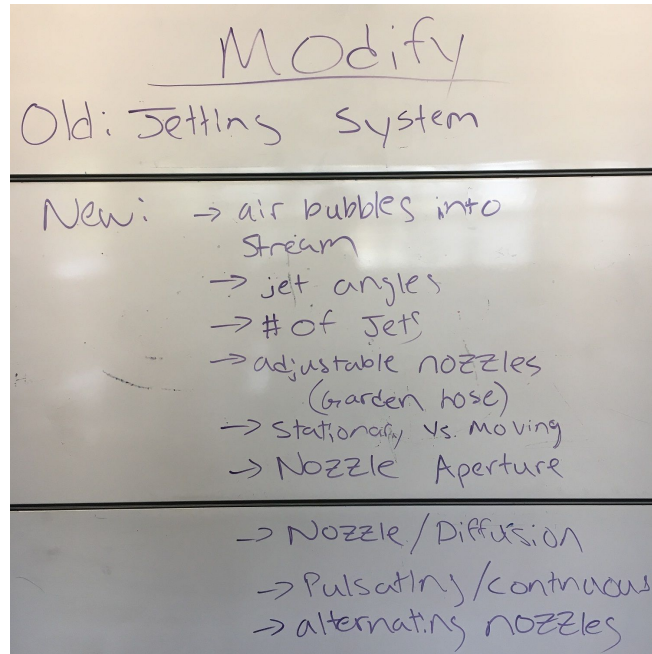 Modify
Old: Jetting System
New: → air bubbles into
stream
→ jet angles
→ # of Jets
→ adjustable nozzles
(Garden hose)
→ Stationary vs. Moving
→ Nozzle Aperture
→ Nozzle / Diffusion
→ Pulsating / continuous
→ alternating nozzles